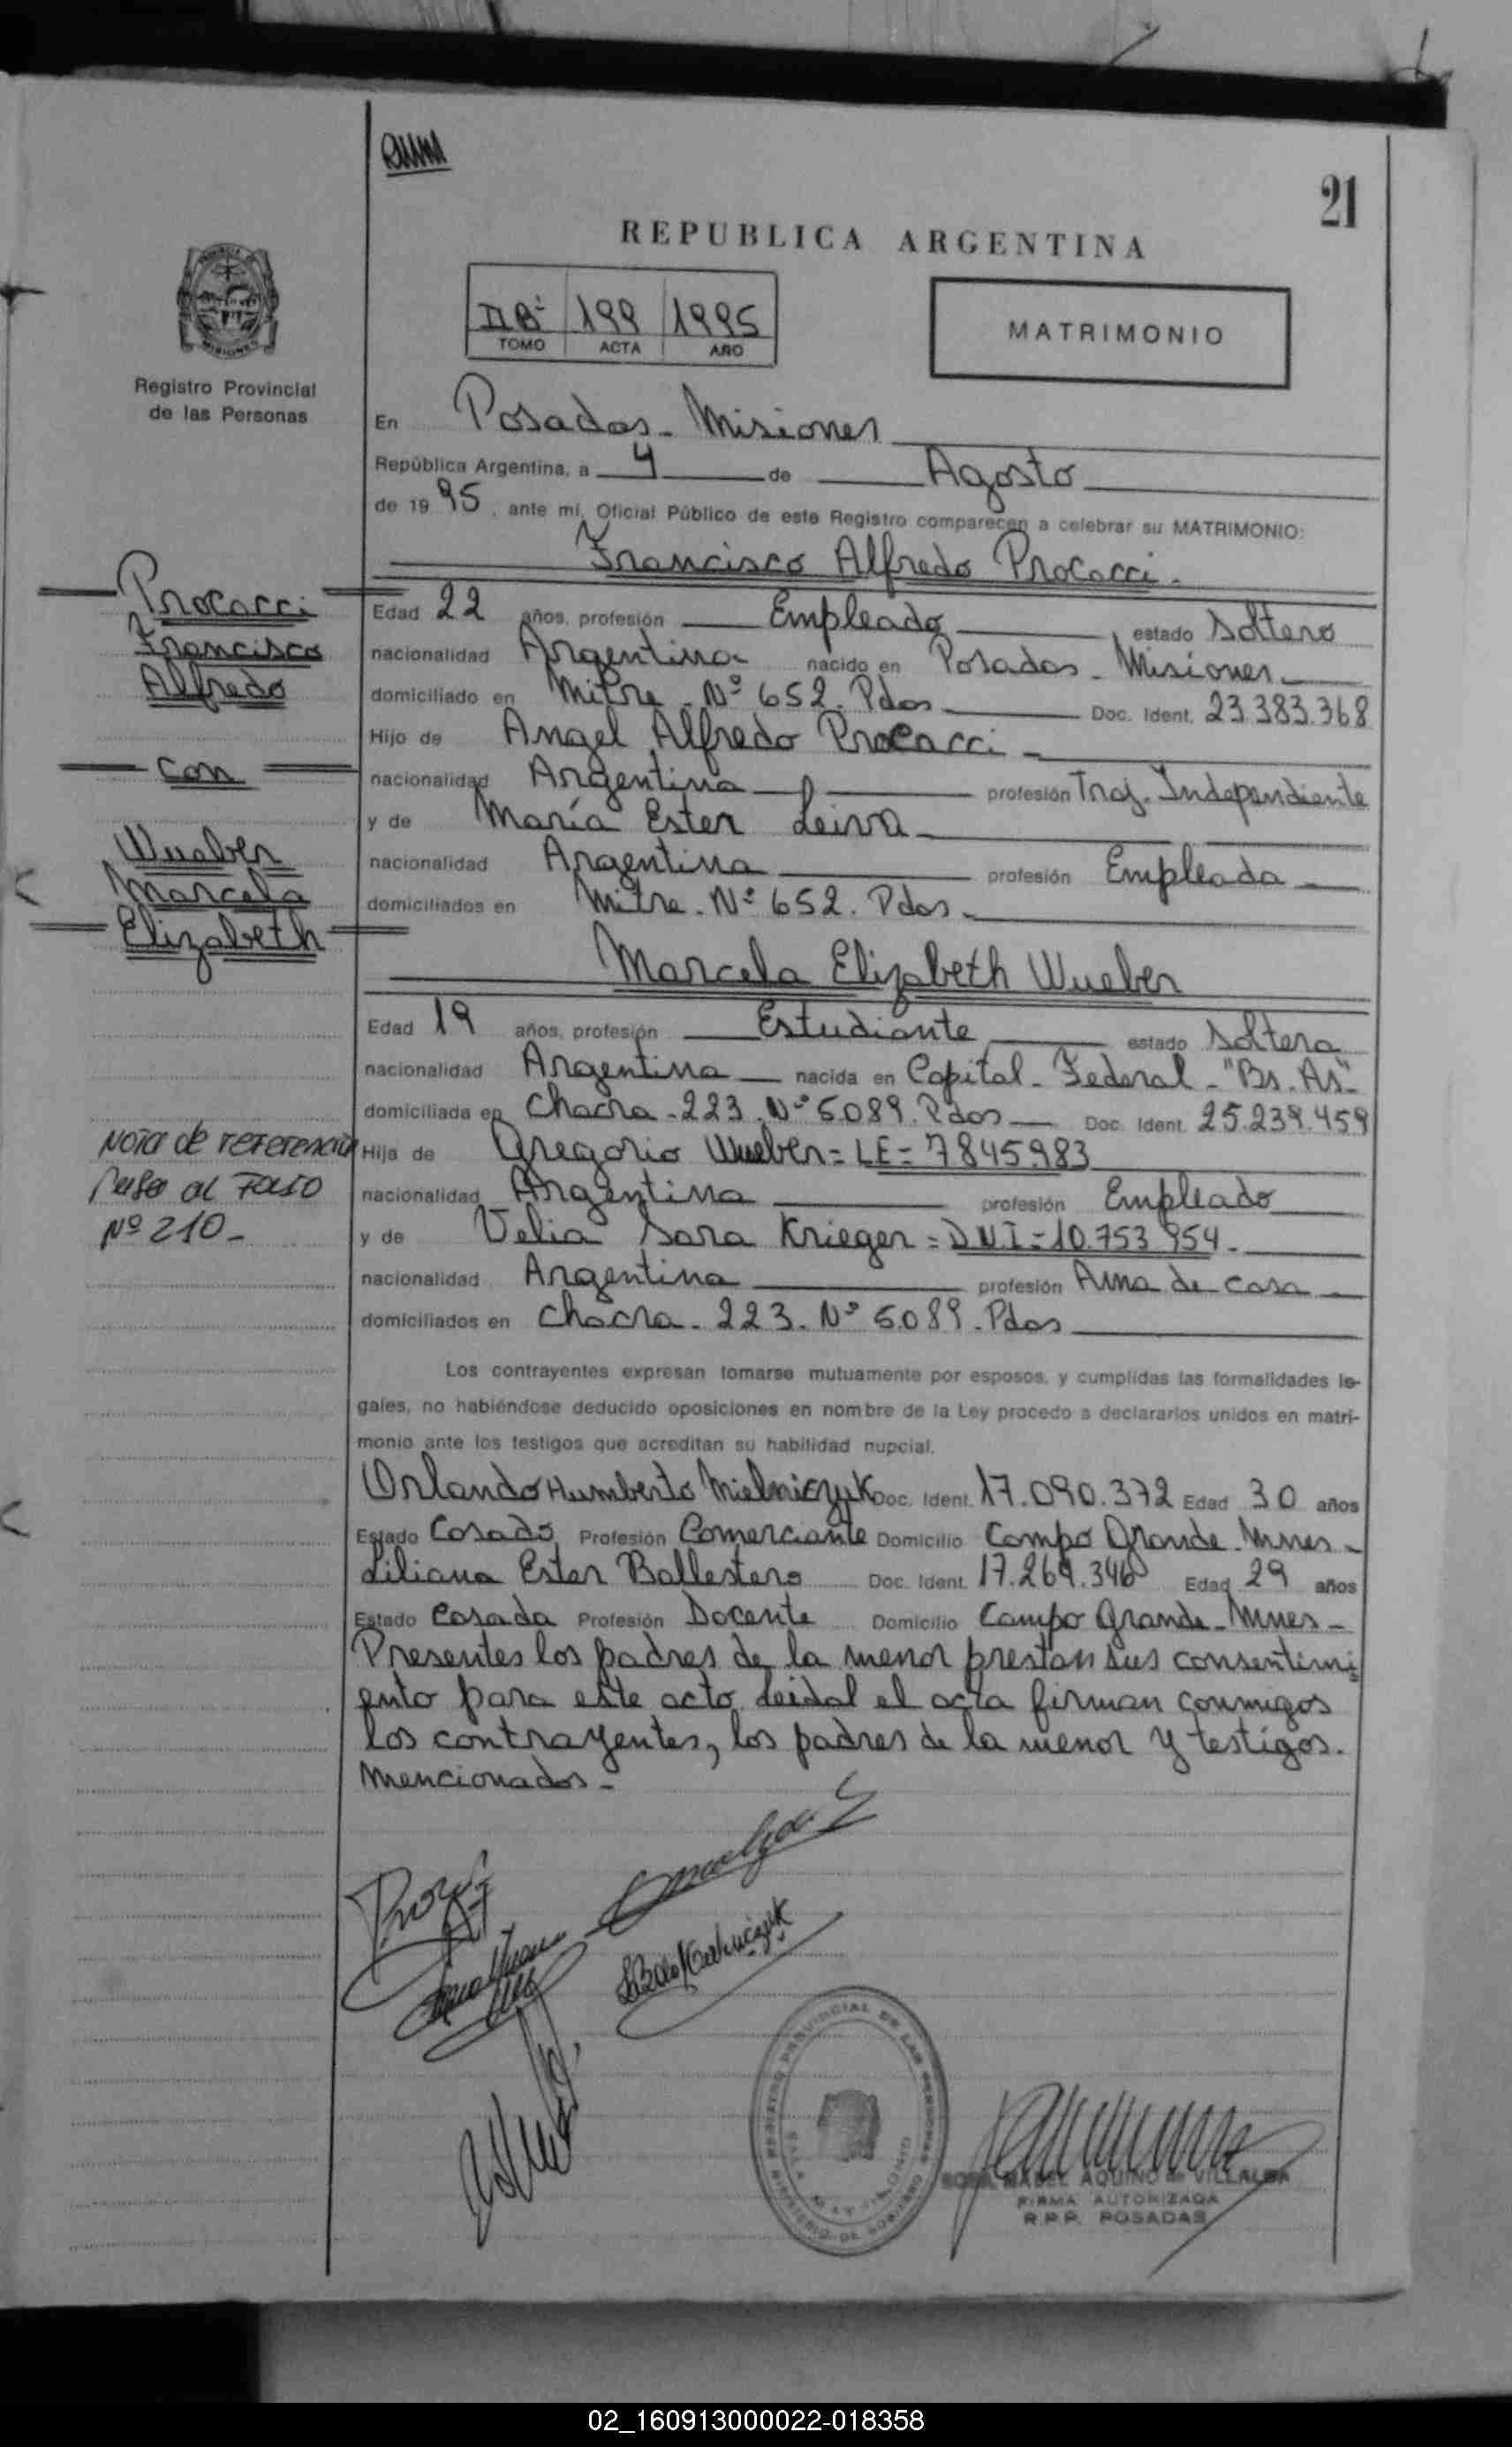 21
REPUBLICA ARGENTINA
199 1995
TOMO ACTA AÑO
MATRIMONIO
MISIONES
Registro Provincial
de las Personas
En Posadas - Misiones
República Argentina, a 4 de Agosto
de 1995, ante mí, Oficial Público de este Registro comparecen a celebrar su MATRIMONIO:
Francisco Alfredo Procacci.
Procacci
Francisco
Alfredo
con
Wueber
Marcela
Elizabeth
Edad 22 años, profesión Empleado estado Soltero
nacionalidad Argentina nacido en Posadas - Misiones
domiciliado en Mitre Nº 652. Pdas Doc. Ident. 23.383.368
Hijo de Angel Alfredo Procacci
nacionalidad Argentina profesión Traj. Independiente
y de María Ester Leiva
nacionalidad Argentina profesión Empleada
domiciliados en Mitre. Nº 652. Pdas
Marcela Elizabeth Wueber
Edad 19 años, profesión Estudiante estado Soltera
nacionalidad Argentina nacida en Capital - Federal - "Bs. As"
domiciliada en Chacra - 223. Nº 5089. Pdas Doc. Ident. 25.239.459
Hija de Gregorio Wueber = LE = 7845983
nacionalidad Argentina profesión Empleado
y de Velia Sara Krieger = D.N.I = 10.753.954
nacionalidad Argentina profesión Ama de casa
domiciliados en Chacra - 223. Nº 5089. Pdas
Nota de referencia
Pase al Folio
Nº 210-
Los contrayentes expresan tomarse mutuamente por esposos, y cumplidas las formalidades le-
gales, no habiéndose deducido oposiciones en nombre de la Ley procedo a declararlos unidos en matri-
monio ante los testigos que acreditan su habilidad nupcial.
Orlando Humberto Mielniczyk Doc. Ident. 17.090.372 Edad 30 años
Estado Casado Profesión Comerciante Domicilio Campo Grande. Mnes-
Liliana Ester Ballestero Doc. Ident. 17.269.346 Edad 29 años
Estado Casada Profesión Docente Domicilio Campo Grande - Mnes-
Presentes los padres de la menor prestan sus consentimi
ento para este acto. Leidal el acta firman conmigos
los contrayentes, los padres de la menor y testigos.
Mencionados-
REGISTRO PROVINCIAL DE LAS PERSONAS
MINISTERIO DE GOBIERNO
ROSA MABEL AQUINO de VILLALBA
FIRMA AUTORIZADA
R.P.P. POSADAS
02_160913000022-018358